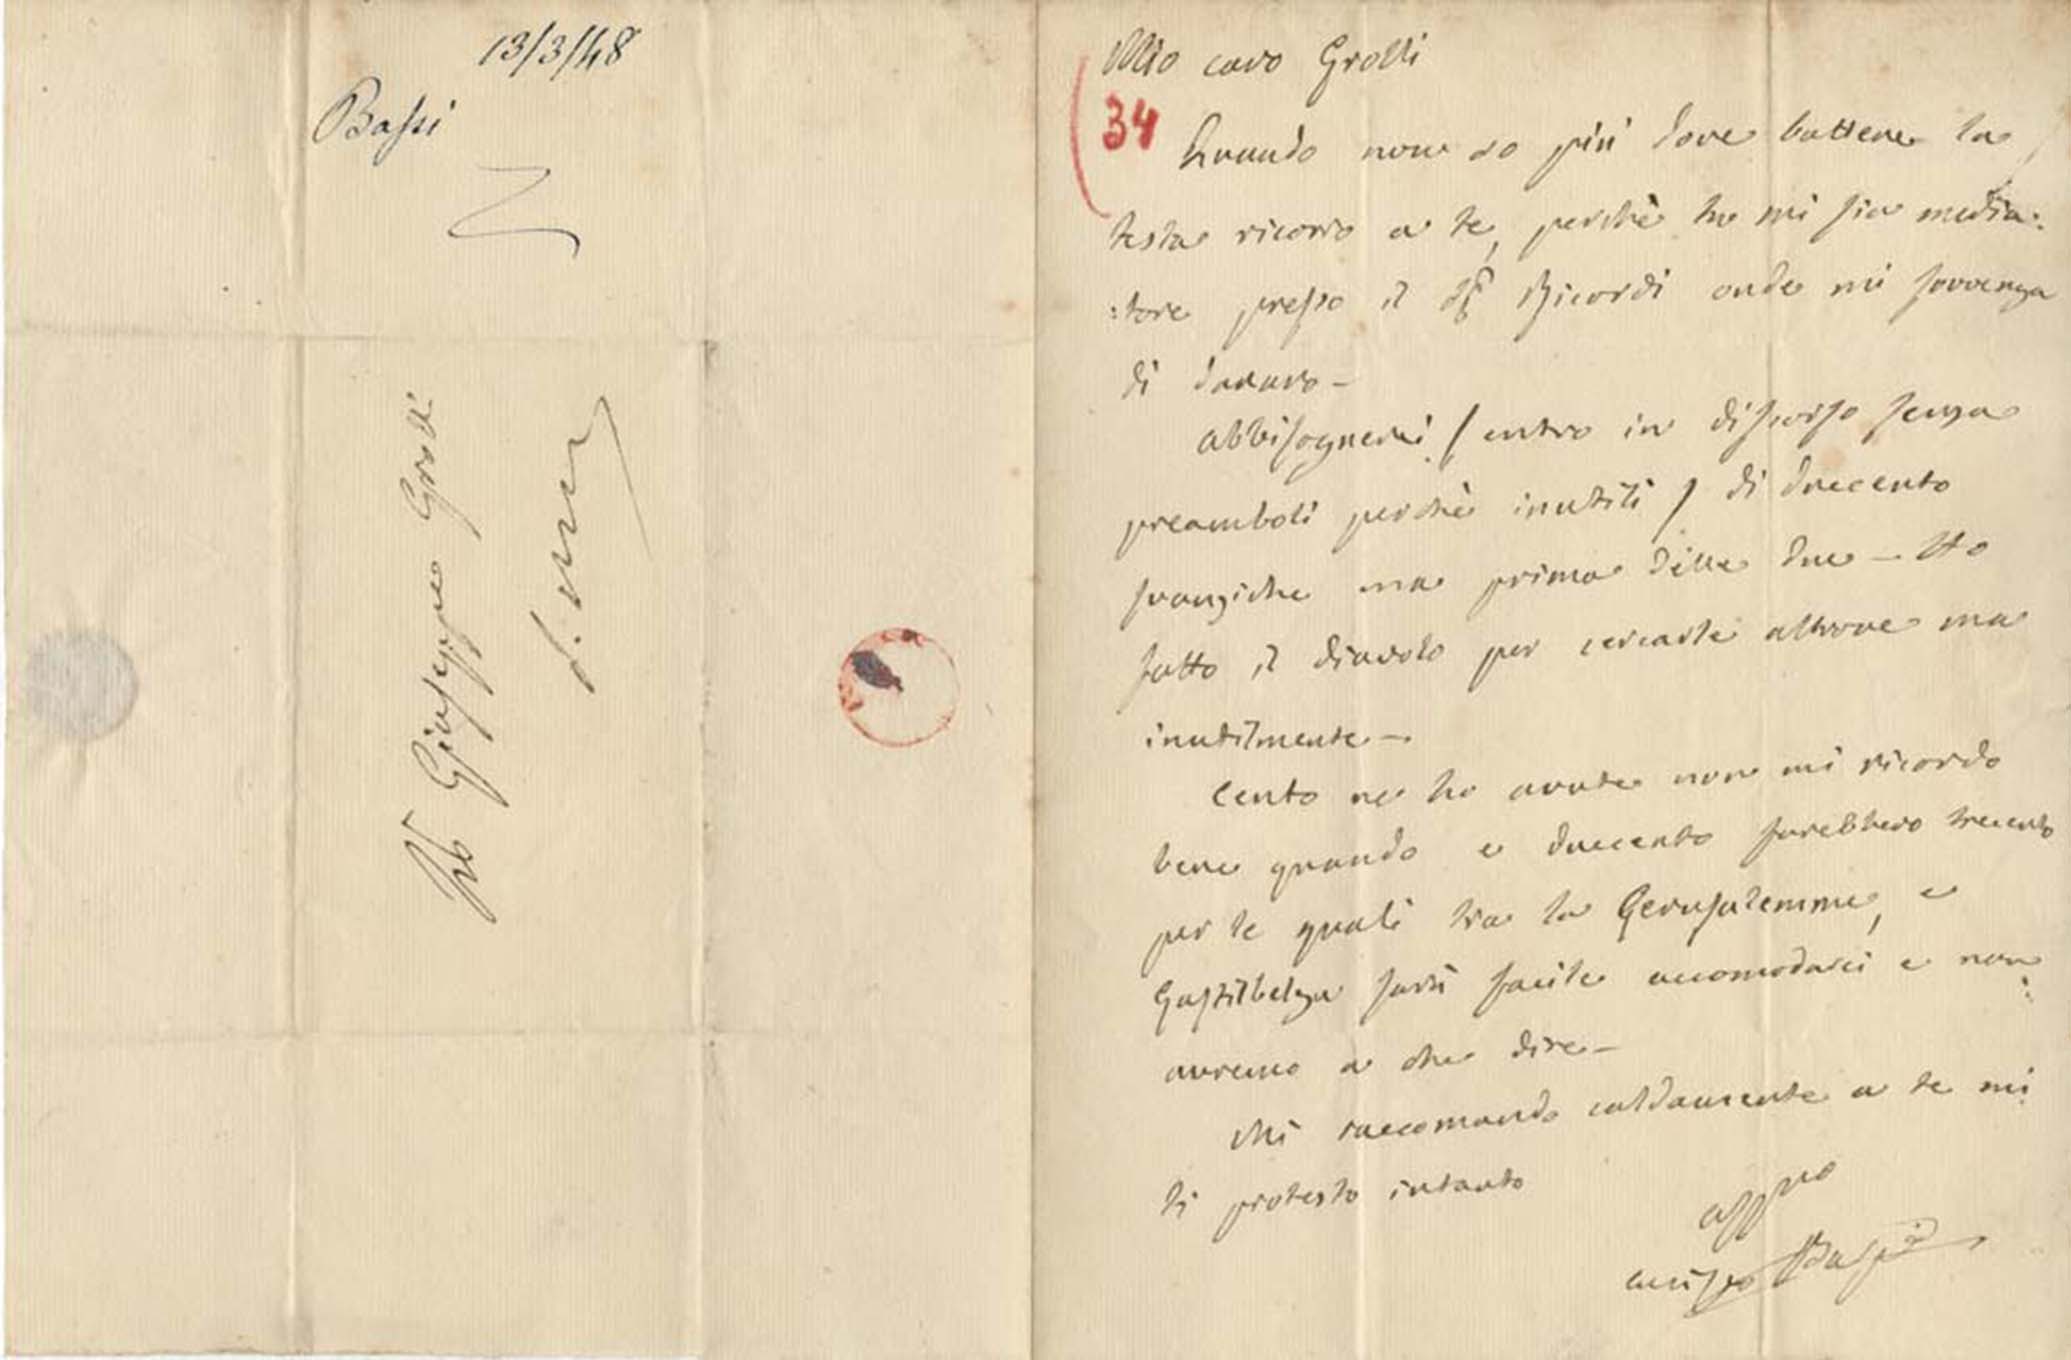 13/3/48
Bassi
Giuseppe Grolli
S. M.
34
Mio caro Grolli
Quando non so più dove battere la
testa ricorro a te, perchè tu mi sia media:
:tore presso il Sig Ricordi onde mi sovvenga
di danaro —
abbisognerei / entro in discorso senza
preamboli perchè inutili / di duecento
svanziche ma prima delle due — Ho
fatto il diavolo per cercarle altrove ma
inutilmente —
Cento ne ho avute non mi ricordo
bene quando e duecento sarebbero trecento
per le quali tra la Gerusalemme, e
Gastilbelza sarà facile accomodarci e non
avremo a che dire —
Mi raccomando caldamente a te mi
ti protesto intanto
affmo
amico Bassi